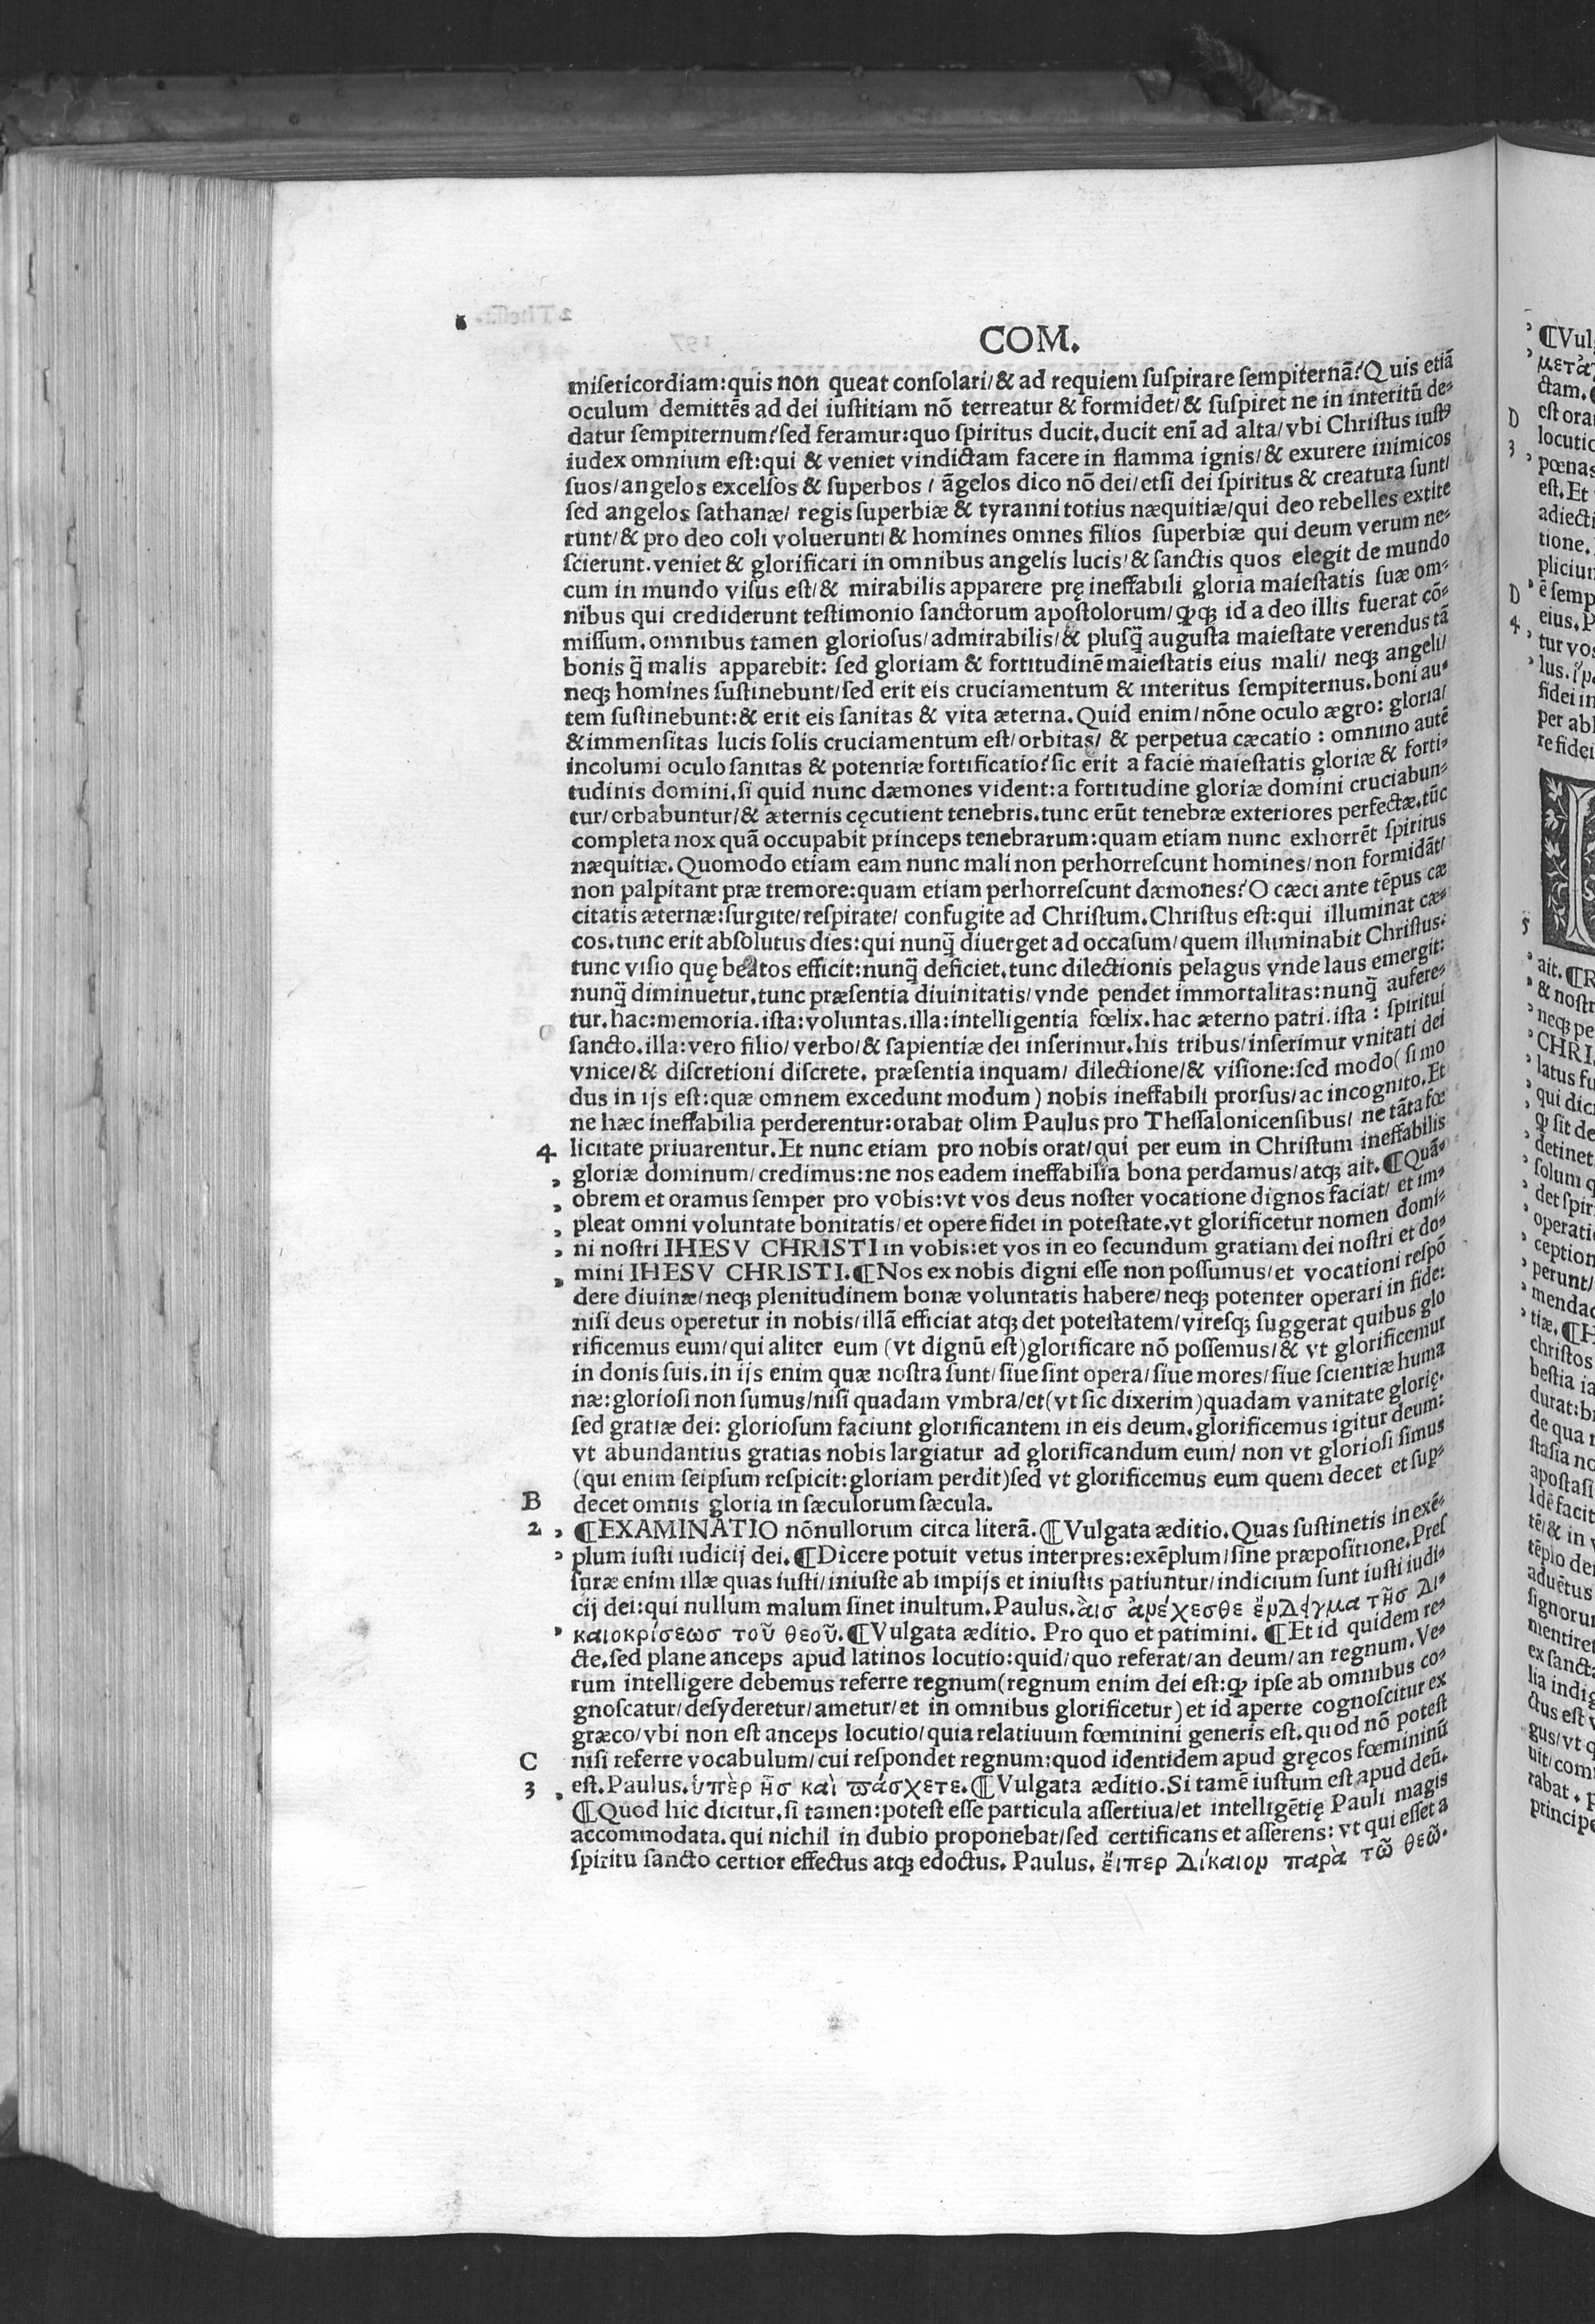 COM.
misericordiam:quis non queat consolari/& ad requiem suspirare sempiternã?Quis etiã
oculum demittẽs ad dei iustitiam nõ terreatur & formidet/& suspiret ne in interitũ de-
datur sempiternum?sed feramur:quo spiritus ducit.ducit enĩ ad alta/vbi Christus iustꝰ
iudex omnium est:qui & veniet vindictam facere in flamma ignis/& exurere inimicos
suos/angelos excelsos & superbos/ ãgelos dico nõ dei/etsi dei spiritus & creatura sunt/
sed angelos sathanæ/ regis superbiæ & tyranni totius næquitiæ/qui deo rebelles extite
runt/& pro deo coli voluerunt/& homines omnes filios superbiæ qui deum verum ne-
scierunt.veniet & glorificari in omnibus angelis lucis/& sanctis quos elegit de mundo
cum in mundo visus est/& mirabilis apparere prę ineffabili gloria maiestatis suæ om-
nibus qui crediderunt testimonio sanctorum apostolorum/ꝙꝗ id a deo illis fuerat cõ-
missum.omnibus tamen gloriosus/admirabilis/& plusq̃ augusta maiestate verendus tã
bonis q̃ malis apparebit: sed gloriam & fortitudinẽ maiestatis eius mali/ neqꝫ angeli/
neqꝫ homines sustinebunt/sed erit eis cruciamentum & interitus sempiternus.boni au-
tem sustinebunt:& erit eis sanitas & vita æterna.Quid enim/nõne oculo ægro: gloria/
&immensitas lucis solis cruciamentum est/orbitas/ & perpetua cæcatio : omnino autẽ
incolumi oculo sanitas & potentiæ fortificatio?sic erit a facie maiestatis gloriæ & forti-
tudinis domini.si quid nunc dæmones vident:a fortitudine gloriæ domini cruciabun-
tur/orbabuntur/& æternis cęcutient tenebris.tunc erũt tenebræ exteriores perfectæ.tũc
completa nox quã occupabit princeps tenebrarum:quam etiam nunc exhorrẽt spiritus
næquitiæ.Quomodo etiam eam nunc mali non perhorrescunt homines/non formidãt/
non palpitant præ tremore:quam etiam perhorrescunt dæmones?O cæci ante tẽpus cæ
citatis æternæ:surgite/respirate/ confugite ad Christum.Christus est:qui illuminat cæ-
cos.tunc erit absolutus dies:qui nunq̃ diuerget ad occasum/quem illuminabit Christus:
tunc visio quę beatos efficit:nunq̃ deficiet.tunc dilectionis pelagus vnde laus emergit:
nunq̃ diminuetur.tunc præsentia diuinitatis/vnde pendet immortalitas:nunq̃ aufere-
tur.hac:memoria.ista:voluntas.illa:intelligentia fœlix.hac æterno patri.ista : spiritui
sancto.illa:vero filio/verbo/& sapientiæ dei inserimur.his tribus/inserimur vnitati dei
vnice/& discretioni discrete. præsentia inquam/ dilectione/& visione:sed modo(si mo
dus in ijs est:quæ omnem excedunt modum) nobis ineffabili prorsus/ac incognito.Et
ne hæc ineffabilia perderentur:orabat olim Paulus pro Thessalonicensibus/ ne tãta fœ
4 licitate priuarentur.Et nunc etiam pro nobis orat/qui per eum in Christum ineffabilis
gloriæ dominum/credimus:ne nos eadem ineffabilia bona perdamus/atqꝫ ait.¶Quã-
obrem et oramus semper pro vobis:vt vos deus noster vocatione dignos faciat/ et im-
pleat omni voluntate bonitatis/et opere fidei in potestate.vt glorificetur nomen domi-
ni nostri IHESV CHRISTI in vobis:et vos in eo secundum gratiam dei nostri et do-
mini IHESV CHRISTI.¶Nos ex nobis digni esse non possumus/et vocationi respõ
dere diuinæ/neqꝫ plenitudinem bonæ voluntatis habere/neqꝫ potenter operari in fide:
nisi deus operetur in nobis/illã efficiat atqꝫ det potestatem/viresqꝫ suggerat quibus glo
rificemus eum/qui aliter eum (vt dignũ est)glorificare nõ possemus/& vt glorificemur
in donis suis.in ijs enim quæ nostra sunt/siue sint opera/siue mores/siue scientiæ huma
næ:gloriosi non sumus/nisi quadam vmbra/et(vt sic dixerim)quadam vanitate glorię.
sed gratiæ dei: gloriosum faciunt glorificantem in eis deum.glorificemus igitur deum:
vt abundantius gratias nobis largiatur ad glorificandum eum/ non vt gloriosi simus
(qui enim seipsum respicit:gloriam perdit)sed vt glorificemus eum quem decet et sup-
B decet omnis gloria in sæculorum sæcula.
2 ¶EXAMINATIO nõnullorum circa literã.¶Vulgata æditio.Quas sustinetis in exẽ-
plum iusti iudicij dei.¶Dicere potuit vetus interpres:exẽplum/sine præpositione.Pres
suræ enim illæ quas iusti/iniuste ab impijs et iniustis patiuntur/indicium sunt iusti iudi-
cij dei:qui nullum malum sinet inultum.Paulus.ἁισ ἀνέχεσθε ἔνδειγμα τῆσ δι-
καιοκρίσεωσ τοῦ θεοῦ.¶Vulgata æditio. Pro quo et patimini. ¶Et id quidem re-
cte.sed plane anceps apud latinos locutio:quid/quo referat/an deum/an regnum.Ve-
rum intelligere debemus referre regnum(regnum enim dei est:ꝙ ipse ab omnibus co-
gnoscatur/desyderetur/ametur/et in omnibus glorificetur)et id aperte cognoscitur ex
græco/vbi non est anceps locutio/quia relatiuum fœminini generis est.quod nõ potest
C nisi referre vocabulum/cui respondet regnum:quod identidem apud gręcos fœmininũ
3 est. Paulus.ὑπὲρ ἧσ καὶ πάσχετε.¶Vulgata æditio.Si tamẽ iustum est apud deũ.
¶Quod hic dicitur.si tamen:potest esse particula assertiua/et intelligẽtię Pauli magis
accommodata.qui nichil in dubio proponebat/sed certificans et asserens: vt qui esset a
spiritu sancto certior effectus atqꝫ edoctus. Paulus. ἔιπερ δίκαιον παρὰ τῶ θεῶ.